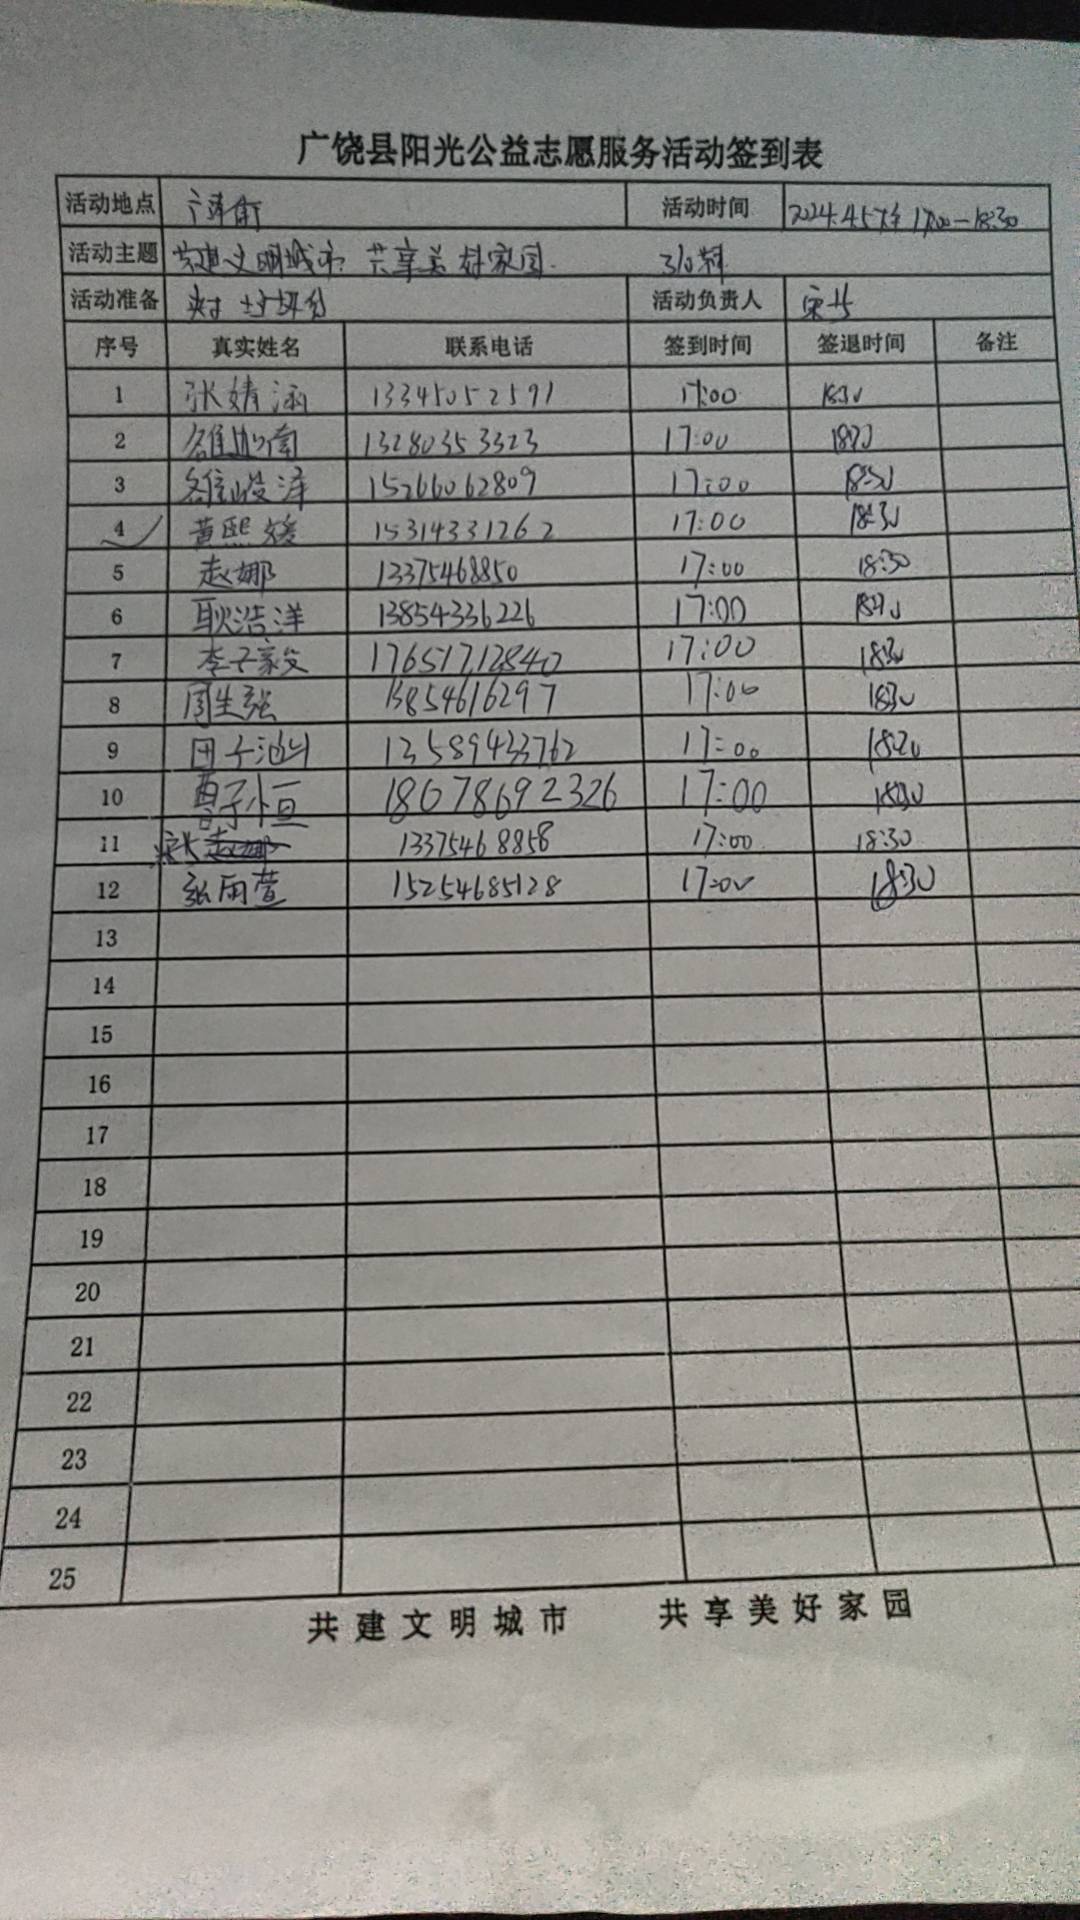 广饶县阳光公益志愿服务活动签到表
活动地点 活动时间 2024.4.5 17:00—18:30
活动主题 共建文明城市 共享美好家园
活动准备 活动负责人
序号 真实姓名 联系电话 签到时间 签退时间 备注
1 张婧涵 13345052591 17:00 18:30
2 13280353323 17:00 18:30
3 15266062809 17:00 18:30
4 黄熙媛 15314331262 17:00 18:30
5 赵娜 13375468850 17:00 18:30
6 耿浩洋 13854336226 17:00 18:30
7 李子毅 17651712840 17:00 18:30
8 周生强 13854616297 17:00 18:30
9 田子 13589433762 17:00 18:30
10 曹子恒 18678692326 17:00 18:30
11 13375468858 17:00 18:30
12 张雨萱 15254685128 17:00 18:30
13
14
15
16
17
18
19
20
21
22
23
24
25
共建文明城市 共享美好家园